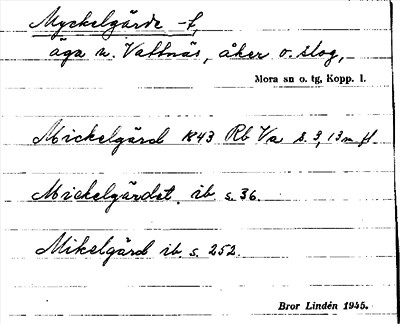 Myckelgärde -t,
äga n. Vattnäs, åker o. slog,
Mora sn o. tg, Kopp. l.
Mickelgärd 1843 Rb Va s. 3, 13 m fl.
Mickelgärdet, ib s. 36.
Mikelgärd ib s. 252.
Bror Lindén 1945.